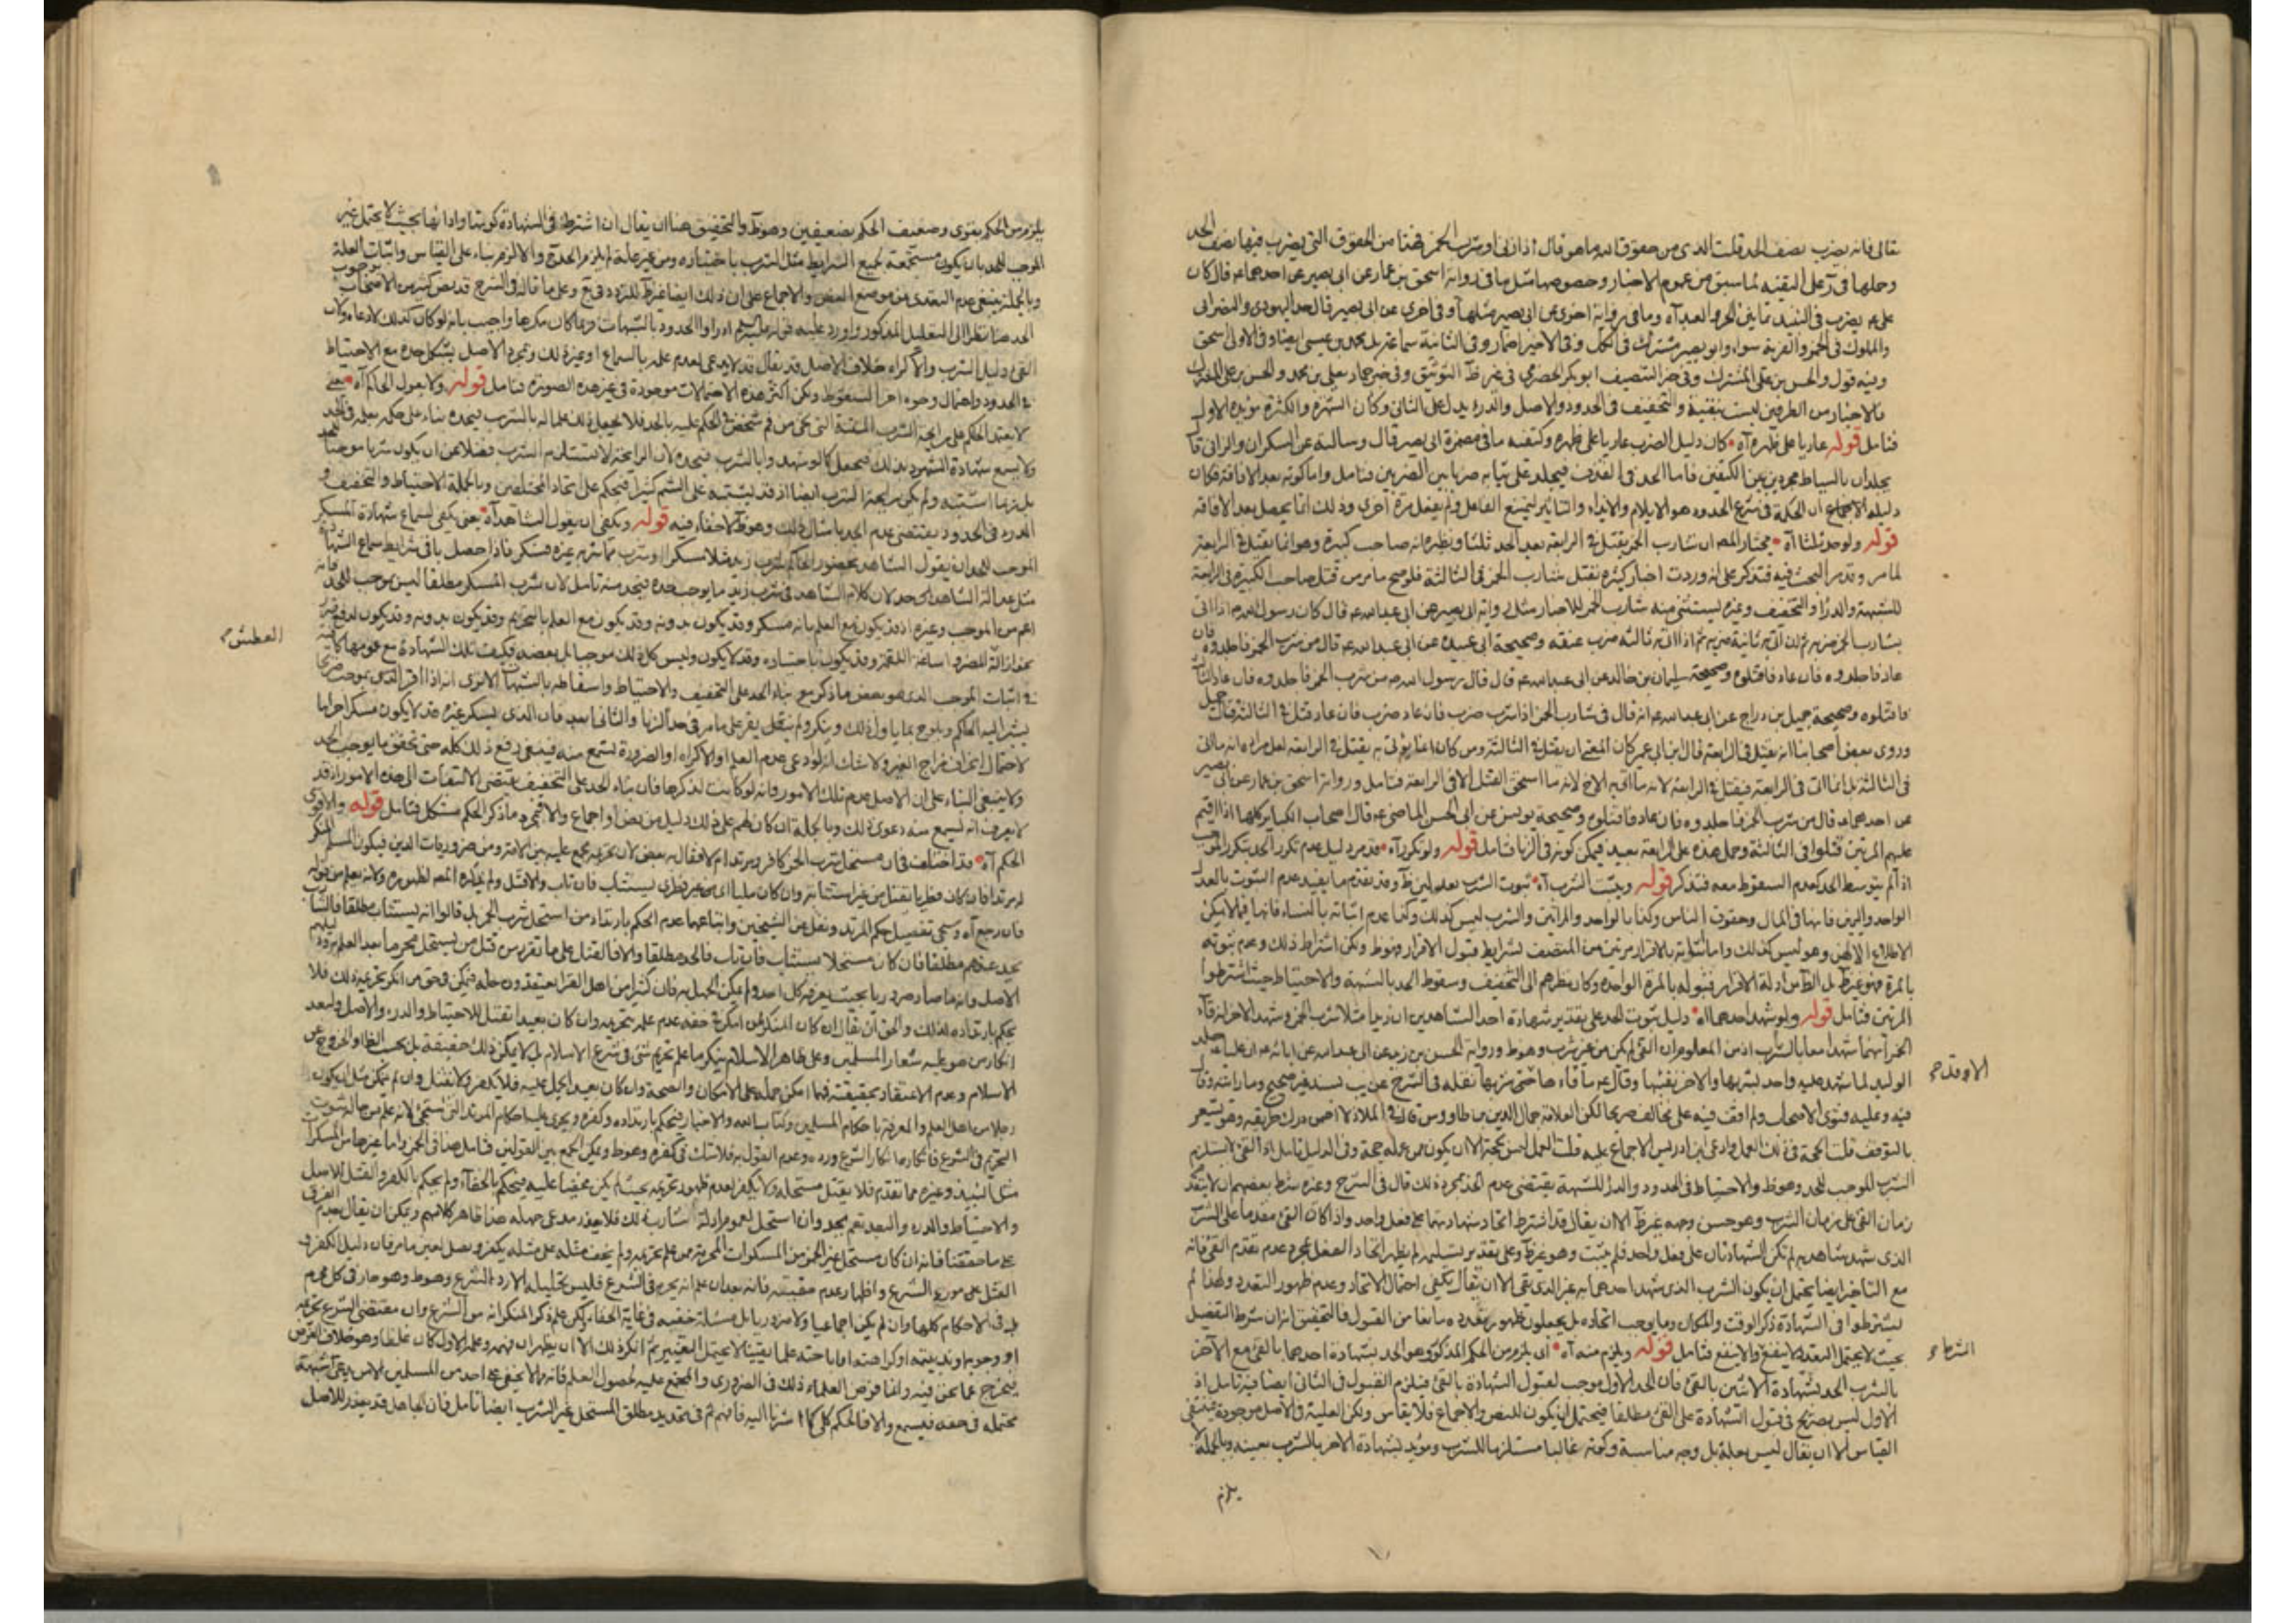 تعالى فانه يضرب نصف الحد قلت الذي من حقوق الله ما هو قال اذا زنى او شرب الخمر فهذا من الحقوق التي يضرب فيها نصف الحد
وحملها في على التقية لما سبق من عموم الاخبار وخصوصها مثل ما في رواية اسحق بن عمار عن ابي بصير عن احدهما ع قال كان
علي ع يضرب في النبيذ ثمانين الحر والعبد آه وما في رواية اخرى عن ابي بصير مثلها وفي اخرى عن ابي بصير قال حد اليهودي والنصراني
والمملوك في الخمر والفرية سواء وابو بصير مشترك في الكل وفي الاخير اضمار وفي الثانية سماعة بل محمد بن عيسى ايضا وفي الاولى اسحق
وفيه قول والحسن بن علي المشترك وفي خبر التنصيف ابو بكر الحضرمي في غير التوثيق وفي خبر حماد معلى بن محمد والحسن بن علي المشترك
فالاخبار من الطرفين ليست بنقية والتخفيف في الحدود والاصل والدرء يدل على الثاني وكأن الشهرة والكثرة مؤيدة الاول
فتامل قوله عاريا على ظهره آه كان دليل الضرب عاريا على ظهره وكتفيه ما في مضمرة ابي بصير قال وسالته عن السكران والزاني قال
يجلدان بالسياط مجردين بين الكتفين فاما الحد في القذف فيجلد على ثيابه ضربا بين الضربين فتامل واما كونه بعد الافاقة فكان
دليله الاجماع ان الحكمة في شرع الحدود هو الايلام والايذاء والتاثير ليمتنع الفاعل ولم يفعل مرة اخرى وذلك انما يحصل بعد الافاقة
قوله ولو حد ثلثا آه مختار المص ان شارب الخمر يقتل في الرابعة بعد الحد ثلثا ونظره انه صاحب كبيرة وهو انما يقتل في الرابعة
لما مر وقد مر البحث فيه فتذكر على انه وردت اخبار كثيرة بقتل شارب الخمر في الثالثة فلو صح ما مر من قتل صاحب الكبيرة في الرابعة
للشبهة والدرء والتخفيف وغيره يستثنى منه شارب الخمر للاخبار مثل رواية ابي بصير عن ابي عبد الله ع قال كان رسول الله ص اذا اتى
بشارب الخمر ضربه ثم ان اتي به ثانية ضربه ثم اذا اتي به ثالثة ضرب عنقه وصحيحة ابي عبيدة عن ابي عبد الله ع قال من شرب الخمر فاجلدوه فان
عاد فاجلدوه فان عاد فاقتلوه وصحيحة سليمان بن خالد عن ابي عبد الله ع قال قال رسول الله ص من شرب الخمر فاجلدوه فان عاد الثالثة
فاقتلوه وصحيحة جميل بن دراج عن ابي عبد الله ع انه قال في شارب الخمر اذا شرب ضرب فان عاد ضرب فان عاد قتل في الثالثة قال جميل
وروى بعض اصحابنا انه يقتل في الرابعة قال ابن ابي عمير كان المعنى ان يقتل في الثالثة ومن كان انما يؤتى به يقتل في الرابعة لعل مراده انه ما اتي
في الثالثة بل انما اتي في الرابعة فيقتل في الرابعة لانه ما اتي به الا لانه ما استحق القتل الا في الرابعة فتامل ورواية اسحق بن عمار عن ابي بصير
عن احدهما ع قال من شرب الخمر فاجلدوه فان عاد فاقتلوه وصحيحة يونس عن ابي الحسن الماضي ع قال اصحاب الكبائر كلها اذا اقيم
عليهم الحد مرتين قتلوا في الثالثة وحمل هذه على الرابعة بعيد فيمكن كونه في الزنا فتامل قوله ولو تكرر آه قد مر دليل عدم تكرر الحد بتكرر الموجب
اذا لم يتوسط الحد كعدم السقوط معه فتذكر قوله ويثبت الشرب آه ثبوت الشرب بعدلين وقد تقدم ما يفيد عدم الثبوت بالعدل
الواحد واليمين فانها في المال وحقوق الناس وكذا بالواحد والمراتين والشرب ليس كذلك وكذا عدم اثباته بالنساء فانها فيما لا يمكن
الاطلاع الا لهن وهو ليس كذلك واما ثبوته بالاقرار مرتين من المتصف بشرايط قبول الاقرار فهوظ ولكن اشتراط ذلك وعدم ثبوته
بالمرة فهو غير ظ بل الظ من ادلة الاقرار قبوله بالمرة الواحدة وكان نظرهم الى التخفيف وسقوط الحد بالشبهة والاحتياط حيث اشترطوا
المرتين فتامل قوله ولو شهد احدهما آه دليل ثبوت الحد على تقدير شهادة احد الشاهدين ان زيدا مثلا شرب الخمر وشهد الاخر انه قاء
الخمر انهما شهدا معا بالشرب اذ من المعلوم ان القئ لم يكن من غير شرب وهو ظ ورواية الحسين بن زيد عن ابي عبد الله عن ابائه ع ان عليا ع جلد
الوليد لما شهد عليه واحد بشربها والاخر بقيئها وقال ع ما قاءها حتى شربها نقله في الشرح عن يب بسند غير صحيح وما راشته
فيه وعليه فتوى الاصحاب ولم اقف فيه على مخالف صريحا لكن العلامة جمال الدين بن طاوس قال في الملاذ لا اضمن درك طريقه وهو يشعر
بالتوقف قلت الحجة في ذلك العمل وادعى ابن ادريس الاجماع عليه قلت العمل ليس بحجة الا ان يكون من عمله حجة وفي الدليل تامل اذ القئ لا يستلزم
الشرب الموجب للحد وهو ظ والاحتياط في الحدود والدرء للشبهة يقتضي عدم الحد بمجرد ذلك قال في الشرح وغيره شرط بعضهم ان لا يتقدم
زمان القئ على زمان الشرب وهو حسن وجهه غير ظ الا ان يقال قد اشترط اتحاد شهادتهما على فعل واحد واذا كان القئ مقدما على الشرب
الذي شهد شاهد به لم تكن الشهادتان على فعل واحد فلم يثبت وهو غير ظ وعلى تقدير تسليمه لم يظهر اتحاد الفعل بمجرد عدم تقدم القئ فانه
مع التاخير ايضا يحتمل ان يكون الشرب الذي شهد احدهما به غير الذي تقي الا ان يقال يكفي احتمال الاتحاد وعدم ظهور التعدد ولهذا لم
يشترطوا في الشهادة ذكر الوقت والمكان وما يوجب اتحاده بل يجعلون ظهور تعدده مانعا من القبول فالتحقيق انه ان شرط التفصيل
بحيث لا يحتمل التعدد لا ينفع والا ينفع فتامل قوله ويلزم منه آه اي يلزم من الحكم المذكور وهو الحد بشهادة احدهما بالقئ مع الآخر
بالشرب الحد بشهادة الاثنين بالقئ فان الحد الاول موجب لقبول الشهادة بالقئ فيلزم القبول في الثاني ايضا فيه تامل اذ
الاول ليس بصريح في قبول الشهادة على القئ مطلقا فيحتمل ان يكون للنص والاجماع فلا يقاس ولكن العلية في الاصل موجودة فينتفي
القياس الا ان يقال ليس بعلة بل وجه مناسبة وكونه غالبا مستلزما للشرب ومؤيد لشهادة الاخر بالشرب بعينه وبالجملة لا
يلزم
الاوقد
الشرط
يلزم من الحكم بقوى وضعيف الحكم بضعيفين وهو ظ والتحقيق هنا ان يقال ان اشترط في الشهادة كونها واداؤها بحيث لا يحتمل غير
الموجب للحد بان يكون مستجمعة لجميع الشرايط مثل الشرب باختياره ومن غير علة لم يلزم الحد ح والا لزم بناء على القياس واثبات العلة
وبالجملة ينبغي عدم التعدي عن موضع النص والاجماع على ان ذلك ايضا غير ظ للتردد في يع وعلى ما قاله في الشرح قد نص كثير من الاصحاب بوجوب
الحد هنا نظرا الى التعليل المذكور واورد عليه قوله ص ادراوا الحدود بالشبهات وربما كان مكرها واجيب بانه لو كان كذلك لادعاه ولان
القئ دليل الشرب والاكراه خلاف الاصل قد يقال قد لا يدعى لعدم علمه بالسماع او غير ذلك ومجرد الاصل يشكل حده مع الاحتياط
في الحدود واحتمال وجوه اخر للسقوط ولكن اكثر هذه الاحتمالات موجودة في غير هذه الصورة فتامل قوله ولا يعول الحاكم آه يعني
لا يعتمد الحاكم على رايحة الشرب المنتفية التي تجئ من فم شخص في الحكم عليه بالحد فلا يجعل ذلك علما له بالشرب فيحده بناء على حكمه بعلمه في الحد
ولا يسمع شهادة الشهود بذلك فيجعل كما لو شهدوا بالشرب فيحده لان الرايحة لا تستلزم الشرب فضلا عن ان يكون شربا موجبا للحد
بل ربما اشتبه ولم يكن رايحة الشرب ايضا اذ قد يشتبه على الشم كثيرا فيحكم على اتحاد المختلفين وبالجملة الاحتياط والتخفيف و
الدرء في الحدود يقتضي عدم الحد بامثال ذلك وهو ظ لاخفاء فيه قوله ويكفي ان يقول الشاهد آه يعني يكفي لسماع شهادة المسكر
الموجب للحد ان يقول الشاهد بحضور الحاكم شرب زيد مثلا مسكرا او شرب مما شربه غيره فسكر فاذا حصل باقي شرايط سماع الشهادة
مثل عدالة الشاهد يحد لان كلام الشاهد في شرب زيد ما يوجب حده فيحد منه تامل لان شرب المسكر مطلقا ليس موجب للحد فانه
اعم من الموجب وغيره اذ قد يكون مع العلم بانه مسكر وقد يكون بدونه وقد يكون مع العلم بالتحريم وقد يكون بدونه وقد يكون لدفع ضرر
نحو ازالة المضر واساغة اللقمة وقد يكون باختياره وقد لا يكون وليس كل ذلك موجبا بل بعضه فكيف تلك الشهادة مع عمومها كافية
في اثبات الموجب الذي هو بعض ما ذكر مع بناء الحد على التخفيف والاحتياط واسقاطه بالشبهات الا ترى انه اذا اقر الذي بموجب صريحا
يشير اليه الحاكم ويلوح بما ياول ذلك وينكر ولم يقبل يقر على ما مر في حد الزنا والثاني ابعد فان الذي يسكر غيره قد لا يكون مسكرا حراما
لاحتمال انحراف مزاج الغير ولا شك انه لو ادعى عدم العلم او الاكراه او الضرورة يسمع منه فينبغي رفع ذلك كله حتى تحقق ما يوجب الحد
ولا ينبغي البناء على ان الاصل عدم تلك الامور فانه لو كانت لذكرها فان بناء الحد على التخفيف يقتضي الالتفات الى هذه الامور اذ قد
لا يعرف انه يسمع منه دعوى ذلك وبالجملة ان كان لهم على ذلك دليل من نص او اجماع والا فمجرد ما ذكر الحكم مشكل فتامل قوله والاقوى
الحكم آه قد اختلف في ان مستحل شرب الخمر كافر ومرتد ام لا فقال به بعض لان تحريمه مجمع عليه بين الامة ومن ضروريات الدين فيكون المسلم المنكر
له مرتدا فان كان فطريا يقتل من غير استتابة وان كان مليا اي من غير فطري يستتاب فان تاب والا قتل ولم يذكره المص لظهوره ولانه يعلم من قوله
فان رجع آه وسيجئ تفصيل حكم المرتد ونقل عن الشيخين واتباعهما عدم الحكم بارتداد من استحل شرب الخمر بل قالوا انه يستتاب مطلقا فالشارب
يحد عندهم مطلقا فان كان مستحلا يستتاب فان تاب فالحد مطلقا والا فالقتل على ما تقرر من قتل من يستحل محرما بعد العلم بتحريمه
الاصل وانه ما صار ضروريا بحيث يعرفه كل احد ولم يمكن الجهل به فان كثيرا من اهل القرا يعتقدون حله فيمكن في حق من انكر تحريمه ذلك فلا
يحكم بارتداده لذلك والحق ان يقال ان كان المنكر ممن امكن في حقه عدم علمه بتحريمه وان كان بعيدا يقتل للاحتياط والدرء والاصل ولبعد
انكار من هو عليه شعار المسلمين وعلى ظاهر الاسلام ينكر ما علم تحريم شئ في شرع الاسلام بل لا يمكن ذلك حقيقة بل بحسب الظاهر والخروج عن
الاسلام وعدم الاعتقاد بحقيقته فمهما امكن حمله على الامكان والصحة وان كان بعيدا يحمل عليه فلا يكفر ولا يقتل وان لم يمكن مثل ان يكون
رجلا من اهل العلم والمعرفة باحكام المسلمين وكتاب الله والاخبار فيحكم بارتداده وكفره ويجري عليه احكام المرتد التي ستجئ لانه علم من حاله ثبوت
التحريم في الشرع فانكاره انكار الشرع ورده وعدم القول به فلا شك في كفره وهو ظ ويمكن الجمع بين القولين فتامل هذا في الخمر واما غيرها من المسكرات
مثل النبيذ وغيره مما تقدم فلا يقتل مستحله ولا يكفر لعدم ظهور تحريمه بحيث لم يكن مخفيا عليه فيحكم بالخفاء ولم يحكم بالكفر والقتل للاصل
والاحتياط والدرء والبعد نعم يحد وان استحل لعموم ادلة الشارب ذلك فلا يعذر مدعي جهله هذا ظاهر كلامهم ويمكن ان يقال بعدم الفرق
على ما حققنا فانه ان كان مستحل غير الخمر من المسكرات المحرمة ممن علم تحريمه ولم يخف مثله على مثله يكفر ويقتل لعين ما مر فان دليل الكفر و
القتل على مورد الشرع واظهار عدم حقيته فانه بعد ان علم انه يحرم في الشرع فليس تحليله الا رد الشرع وهو ظ وهو جار في كل محرم
بل في الاحكام كلها وان لم يكن اجماعيا ولا ضروريا بل مسئلة خفية في غاية الخفاء لكن علم ذكر المنكر انه من الشرع وان مقتضى الشرع تحريمه
او وجوبه او ندبيته او كراهته او اباحته علما يقينيا لا يحتمل التغيير ثم انكر ذلك الا ان يظهر ان فهمه وعلمه الاول كان غلطا وهو خلاف الفرض
فيخرج عما نحن فيه وانما فرض العلماء ذلك في الضروري والمجمع عليه لحصول العلم فانه لا يخفى على احد من المسلمين الا من يدعي شبهة
محتملة في حقه فيسمع والا فالحكم كلي كما اشرنا اليه فافهم ثم في تحديد مطلق المستحل غير الشرب ايضا تامل فان الجاهل قد يعذر للاصل
العطش